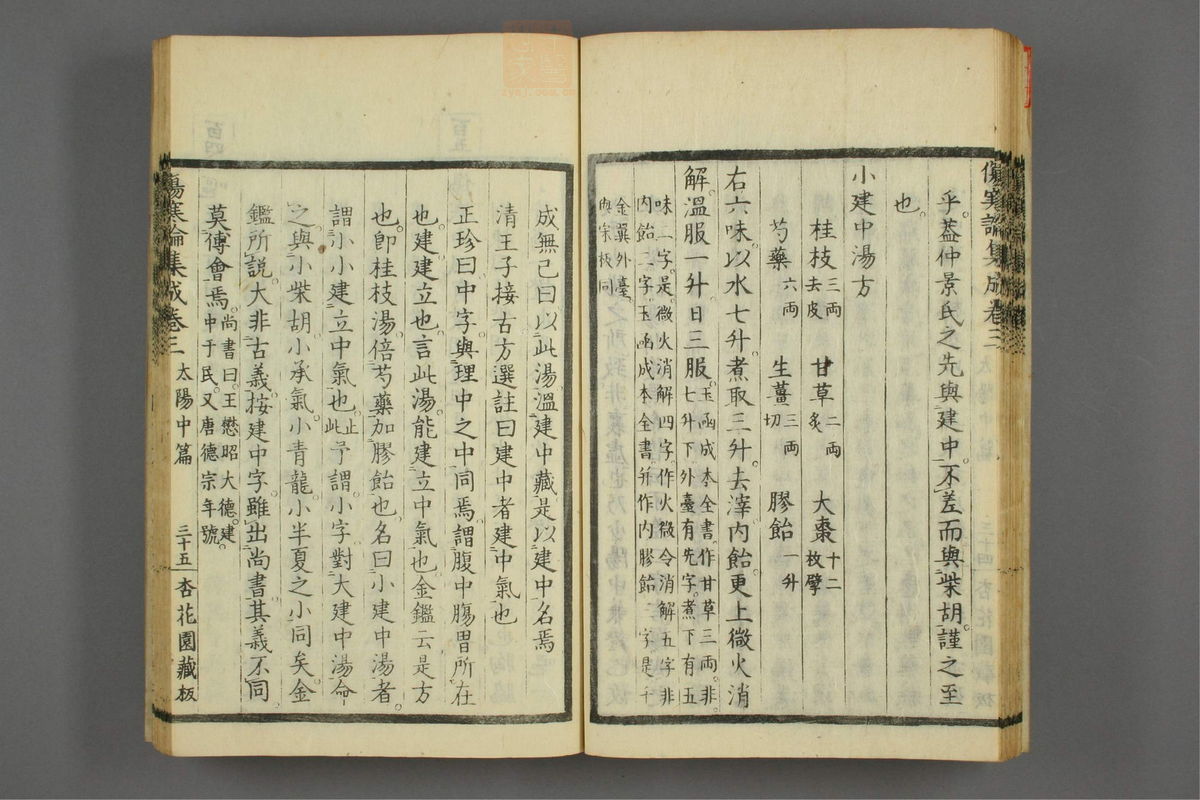 傷寒論集成卷三
乎蓋仲景氏之先與建中不差而與柴胡謹之至
也
小建中湯方
桂枝三兩去皮 甘草二兩炙 大棗十二枚擘
芍藥六兩 生薑三兩切 膠飴一升
右六味以水七升煮取三升去滓內飴更上微火消
解溫服一升日三服玉函成本全書作甘草三兩非七升下外臺有先字煮下有五
味二字是微火消解四字作火微令消解五字非內飴二字玉函成本全書并作內膠飴 字是千
金翼外臺與宋板同
成無己曰以此湯溫建中藏是以建中名焉
清王子接古方選註曰建中者建中氣也
正珍曰中字與理中之中同焉謂腹中腸胃所在
也建建立也言此湯能建立中氣也金鑑云是方
也即桂枝湯倍芍藥加膠飴也名曰小建中湯者
謂小小建立中氣也止此予謂小字對大建中湯命
之與小柴胡小承氣小青龍小半夏之小同矣金
鑑所說大非古義按建中字雖出尚書其義不同
莫傅會焉尚書曰王懋昭大德建中于民又唐德宗年號
傷寒論集成卷三 太陽中篇 三十五 杏花園藏板